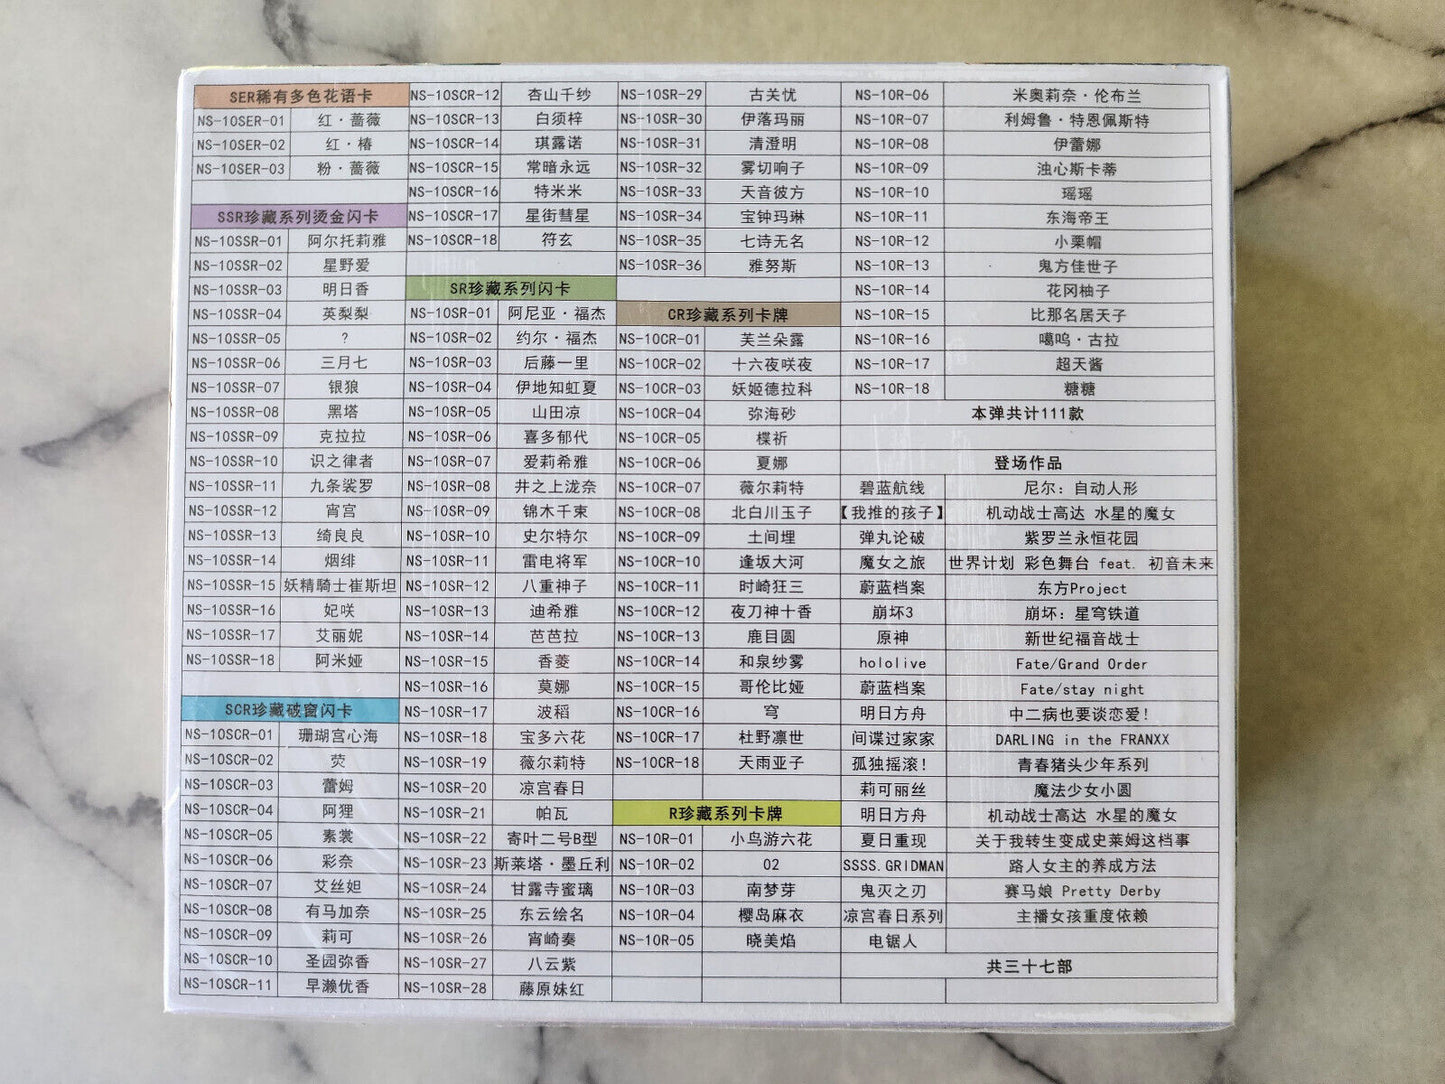 SER稀有多色花语卡
NS-10SER-01 红·蔷薇
NS-10SER-02 红·椿
NS-10SER-03 粉·蔷薇
SSR珍藏系列烫金闪卡
NS-10SSR-01 阿尔托莉雅
NS-10SSR-02 星野爱
NS-10SSR-03 明日香
NS-10SSR-04 英梨梨
NS-10SSR-05 ?
NS-10SSR-06 三月七
NS-10SSR-07 银狼
NS-10SSR-08 黑塔
NS-10SSR-09 克拉拉
NS-10SSR-10 识之律者
NS-10SSR-11 九条裟罗
NS-10SSR-12 宵宫
NS-10SSR-13 绮良良
NS-10SSR-14 烟绯
NS-10SSR-15 妖精騎士崔斯坦
NS-10SSR-16 妃咲
NS-10SSR-17 艾丽妮
NS-10SSR-18 阿米娅
SCR珍藏破窗闪卡
NS-10SCR-01 珊瑚宫心海
NS-10SCR-02 荧
NS-10SCR-03 蕾姆
NS-10SCR-04 阿狸
NS-10SCR-05 素裳
NS-10SCR-06 彩奈
NS-10SCR-07 艾丝妲
NS-10SCR-08 有马加奈
NS-10SCR-09 莉可
NS-10SCR-10 圣园弥香
NS-10SCR-11 早濑优香
NS-10SCR-12 杏山千纱
NS-10SCR-13 白须梓
NS-10SCR-14 琪露诺
NS-10SCR-15 常暗永远
NS-10SCR-16 特米米
NS-10SCR-17 星街彗星
NS-10SCR-18 符玄
SR珍藏系列闪卡
NS-10SR-01 阿尼亚·福杰
NS-10SR-02 约尔·福杰
NS-10SR-03 后藤一里
NS-10SR-04 伊地知虹夏
NS-10SR-05 山田凉
NS-10SR-06 喜多郁代
NS-10SR-07 爱莉希雅
NS-10SR-08 井之上泷奈
NS-10SR-09 锦木千束
NS-10SR-10 史尔特尔
NS-10SR-11 雷电将军
NS-10SR-12 八重神子
NS-10SR-13 迪希雅
NS-10SR-14 芭芭拉
NS-10SR-15 香菱
NS-10SR-16 莫娜
NS-10SR-17 波稻
NS-10SR-18 宝多六花
NS-10SR-19 薇尔莉特
NS-10SR-20 凉宫春日
NS-10SR-21 帕瓦
NS-10SR-22 寄叶二号B型
NS-10SR-23 斯莱塔·墨丘利
NS-10SR-24 甘露寺蜜璃
NS-10SR-25 东云绘名
NS-10SR-26 宵崎奏
NS-10SR-27 八云紫
NS-10SR-28 藤原妹红
NS-10SR-29 古关忧
NS-10SR-30 伊落玛丽
NS-10SR-31 清澄明
NS-10SR-32 雾切响子
NS-10SR-33 天音彼方
NS-10SR-34 宝钟玛琳
NS-10SR-35 七诗无名
NS-10SR-36 雅努斯
CR珍藏系列卡牌
NS-10CR-01 芙兰朵露
NS-10CR-02 十六夜咲夜
NS-10CR-03 妖姬德拉科
NS-10CR-04 弥海砂
NS-10CR-05 楪祈
NS-10CR-06 夏娜
NS-10CR-07 薇尔莉特
NS-10CR-08 北白川玉子
NS-10CR-09 土间埋
NS-10CR-10 逢坂大河
NS-10CR-11 时崎狂三
NS-10CR-12 夜刀神十香
NS-10CR-13 鹿目圆
NS-10CR-14 和泉纱雾
NS-10CR-15 哥伦比娅
NS-10CR-16 穹
NS-10CR-17 杜野凛世
NS-10CR-18 天雨亚子
R珍藏系列卡牌
NS-10R-01 小鸟游六花
NS-10R-02 02
NS-10R-03 南梦芽
NS-10R-04 樱岛麻衣
NS-10R-05 晓美焰
NS-10R-06 米奥莉奈·伦布兰
NS-10R-07 利姆鲁·特恩佩斯特
NS-10R-08 伊蕾娜
NS-10R-09 浊心斯卡蒂
NS-10R-10 瑶瑶
NS-10R-11 东海帝王
NS-10R-12 小栗帽
NS-10R-13 鬼方佳世子
NS-10R-14 花冈柚子
NS-10R-15 比那名居天子
NS-10R-16 噶呜·古拉
NS-10R-17 超天酱
NS-10R-18 糖糖
本弹共计111款
登场作品
碧蓝航线 尼尔：自动人形
【我推的孩子】 机动战士高达 水星的魔女
弹丸论破 紫罗兰永恒花园
魔女之旅 世界计划 彩色舞台 feat. 初音未来
蔚蓝档案 东方Project
崩坏3 崩坏：星穹铁道
原神 新世纪福音战士
hololive Fate/Grand Order
蔚蓝档案 Fate/stay night
明日方舟 中二病也要谈恋爱！
间谍过家家 DARLING in the FRANXX
孤独摇滚！ 青春猪头少年系列
莉可丽丝 魔法少女小圆
明日方舟 机动战士高达 水星的魔女
夏日重现 关于我转生变成史莱姆这档事
SSSS.GRIDMAN 路人女主的养成方法
鬼灭之刃 赛马娘 Pretty Derby
凉宫春日系列 主播女孩重度依赖
电锯人
共三十七部